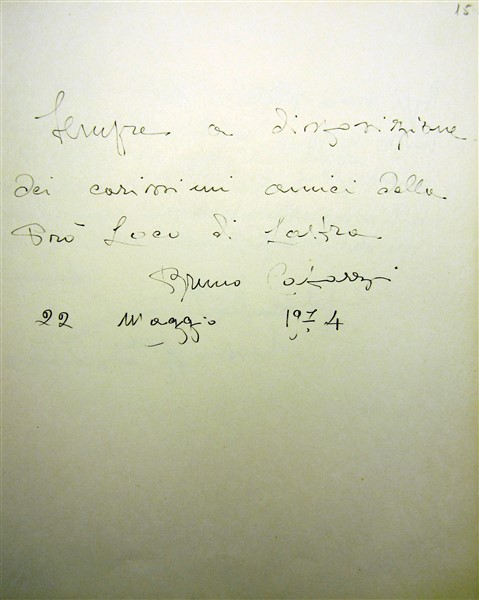 15
Sempre a disposizione
dei carissimi amici della
Prò Loco di Lastra
Bruno
22 Maggio 1974